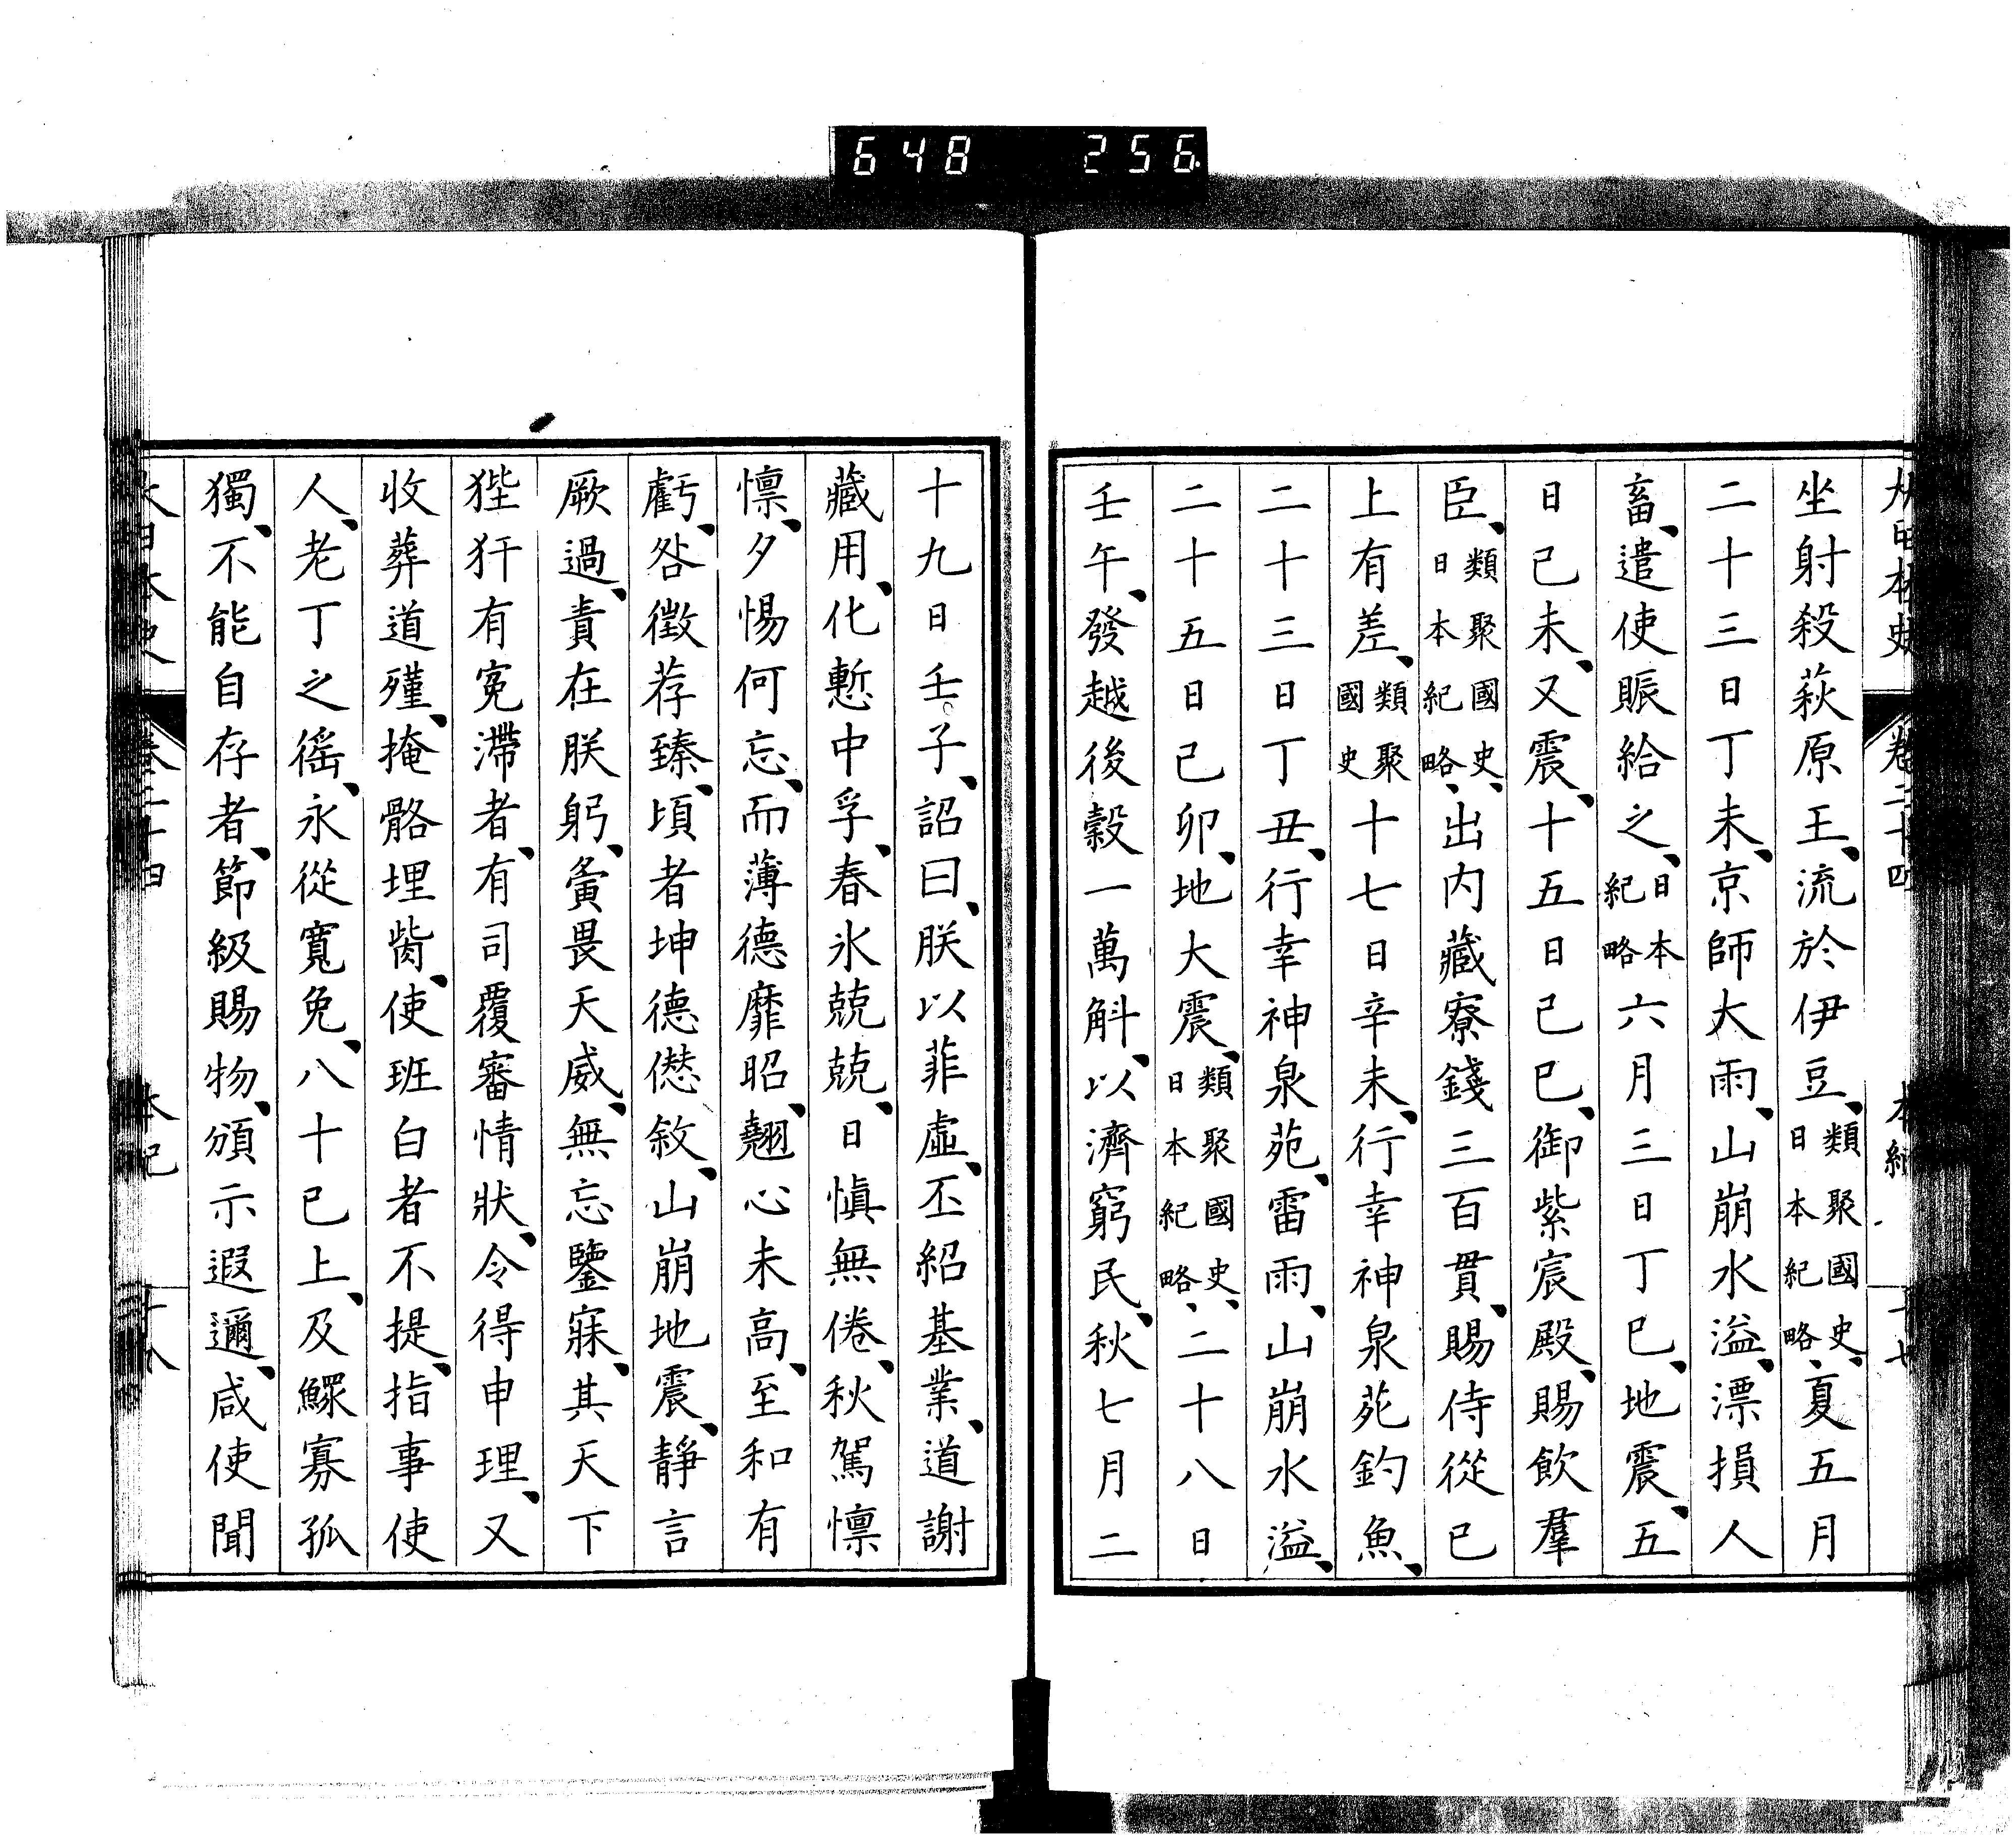 648 256
大日本史 卷二十四 本紀 十七
坐射殺萩原王、流於伊豆、類聚國史、日本紀略、夏五月
二十三日丁未、京師大雨、山崩水溢、漂損人
畜、遣使賑給之、日本紀略六月三日丁巳、地震、五
日己未、又震、十五日己巳、御紫宸殿、賜飲羣
臣、類聚國史、日本紀略、出内藏寮錢三百貫、賜侍從已
上有差、類聚國史十七日辛未、行幸神泉苑釣魚、
二十三日丁丑、行幸神泉苑、雷雨、山崩水溢、
二十五日己卯、地大震、類聚國史、日本紀略、二十八日
壬午、發越後穀一萬斛、以濟窮民、秋七月二
十九日壬子、詔曰、朕以菲虛、丕紹基業、道謝
藏用、化慙中孚、春氷兢兢、日愼無倦、秋駕懍
懍、夕惕何忘、而薄德靡昭、翹心未高、至和有
虧、咎徵荐臻、頃者坤德僁敘、山崩地震、靜言
厥過、責在朕躬、夤畏天威、無忘鑒寐、其天下
狴犴有寃滯者、有司覆審情狀、令得申理、又
收葬道殣、掩骼埋胔、使班白者不提、指事使
人、老丁之徭、永從寬免、八十已上、及鰥寡孤
獨、不能自存者、節級賜物、頒示遐邇、咸使聞
大日本史 卷二十四 本紀 十八